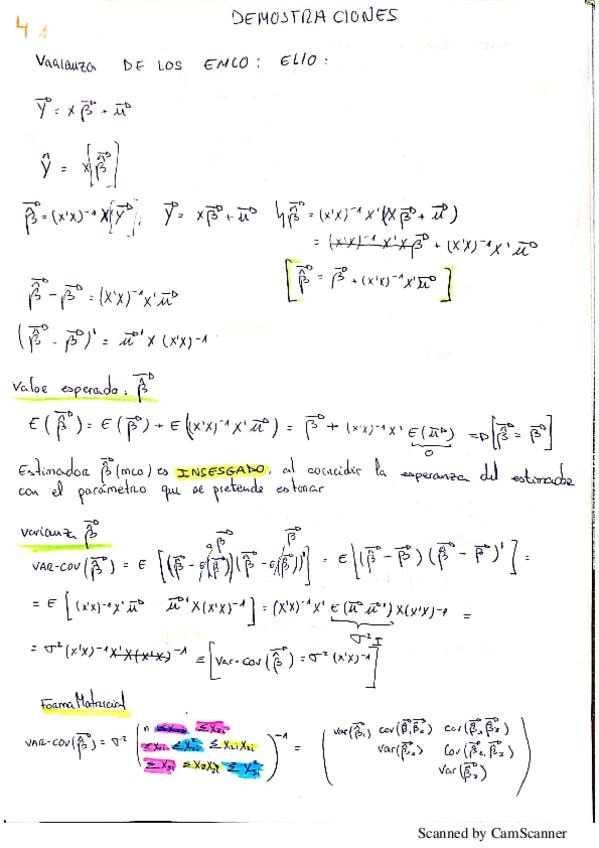 4 1
DEMOSTRACIONES
Varianza DE LOS EMCO: ELIO:
Y⃗ = Xβ⃗ + u⃗
Ŷ = X[β̂⃗]
β̂⃗ = (X'X)⁻¹X'[Y⃗]; Y⃗ = Xβ⃗ + u⃗ ↳ β̂⃗ = (X'X)⁻¹X'(Xβ⃗ + u⃗)
= (X'X)⁻¹X'Xβ⃗ + (X'X)⁻¹X'u⃗
[β̂⃗ = β⃗ + (X'X)⁻¹X'u⃗]
β̂⃗ - β⃗ = (X'X)⁻¹X'u⃗
(β̂⃗ - β⃗)' = u⃗'X(X'X)⁻¹
Valor esperado: β̂⃗
E(β̂⃗) = E(β⃗) + E((X'X)⁻¹X'u⃗) = β⃗ + (X'X)⁻¹X' E(u⃗) => [β̂⃗ = β⃗]
0
Estimador β̂⃗(mco) es INSESGADO, al coincidir la esperanza del estimador
con el parámetro que se pretende estimar
Varianza β̂⃗
β⃗ β⃗
VAR-COV(β̂⃗) = E[(β̂⃗ - E(β̂⃗))(β̂⃗ - E(β̂⃗))'] = E[(β̂⃗ - β⃗)(β̂⃗ - β⃗)'] =
= E[(X'X)⁻¹X'u⃗ u⃗'X(X'X)⁻¹] = (X'X)⁻¹X' E(u⃗u⃗') X(X'X)⁻¹ =
σ²I
= σ²(X'X)⁻¹X'X(X'X)⁻¹ = [Var-Cov(β̂⃗) = σ²(X'X)⁻¹]
Forma Matricial
VAR-COV(β̂⃗) = σ² ( n Σx₂ᵢ Σx₃ᵢ )⁻¹ = ( var(β̂₁) cov(β̂₁,β̂₂) cov(β̂₁,β̂₃) )
Σx₂ᵢ Σx₂ᵢ² Σx₂ᵢx₃ᵢ var(β̂₂) Cov(β̂₂,β̂₃)
Σx₃ᵢ Σx₃x₂ᵢ Σx₃ᵢ² Var(β̂₃)
Scanned by CamScanner